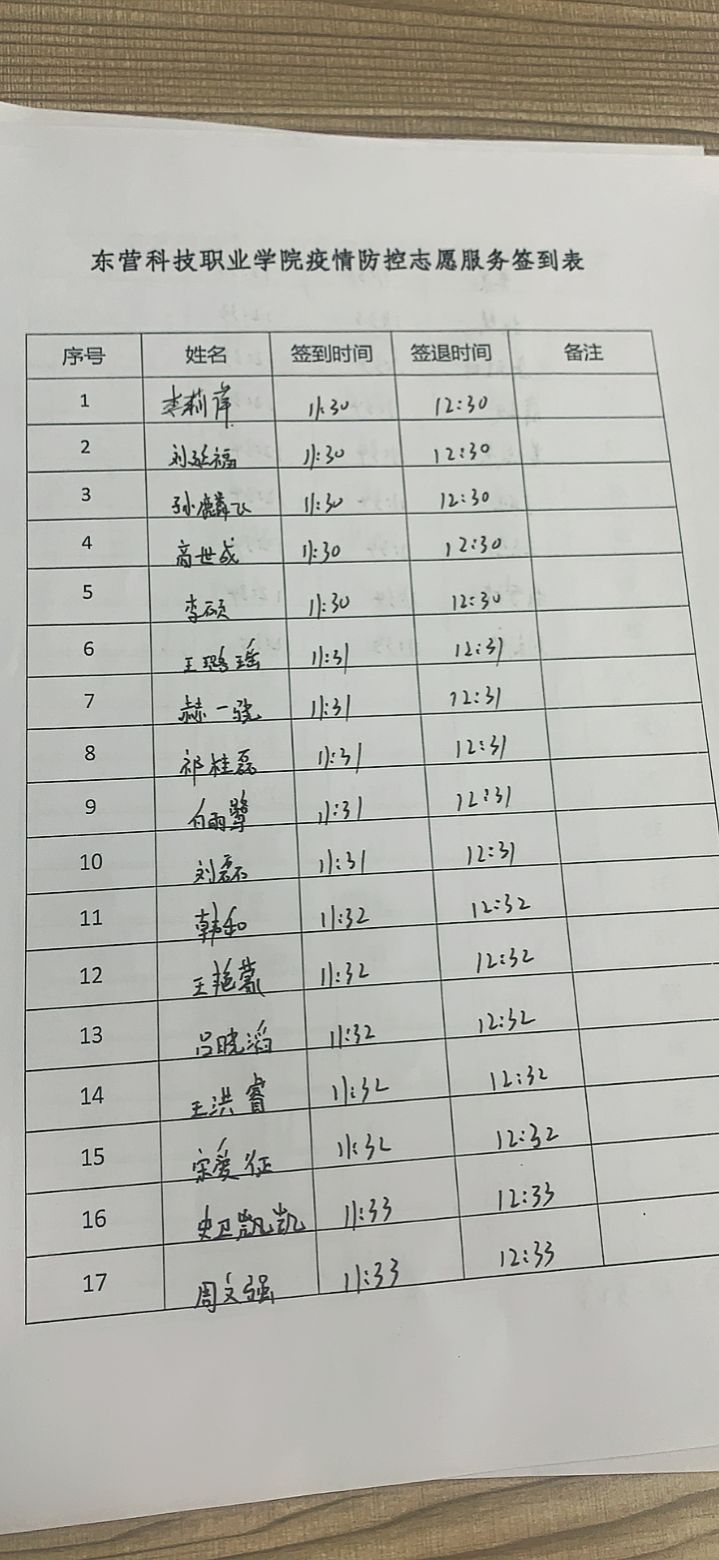 东营科技职业学院疫情防控志愿服务签到表
序号 姓名 签到时间 签退时间 备注
1 李莉萍 11:30 12:30
2 刘延福 11:30 12:30
3 孙麟飞 11:30 12:30
4 高世成 11:30 12:30
5 李硕 11:30 12:30
6 王璐瑶 11:31 12:31
7 赫一骁 11:31 12:31
8 祁桂磊 11:31 12:31
9 11:31 12:31
10 刘磊 11:31 12:31
11 韩和 11:32 12:32
12 11:32 12:32
13 吕晓滔 11:32 12:32
14 王洪睿 11:32 12:32
15 宗爱征 11:32 12:32
16 史卫凯凯 11:33 12:33
17 周文强 11:33 12:33